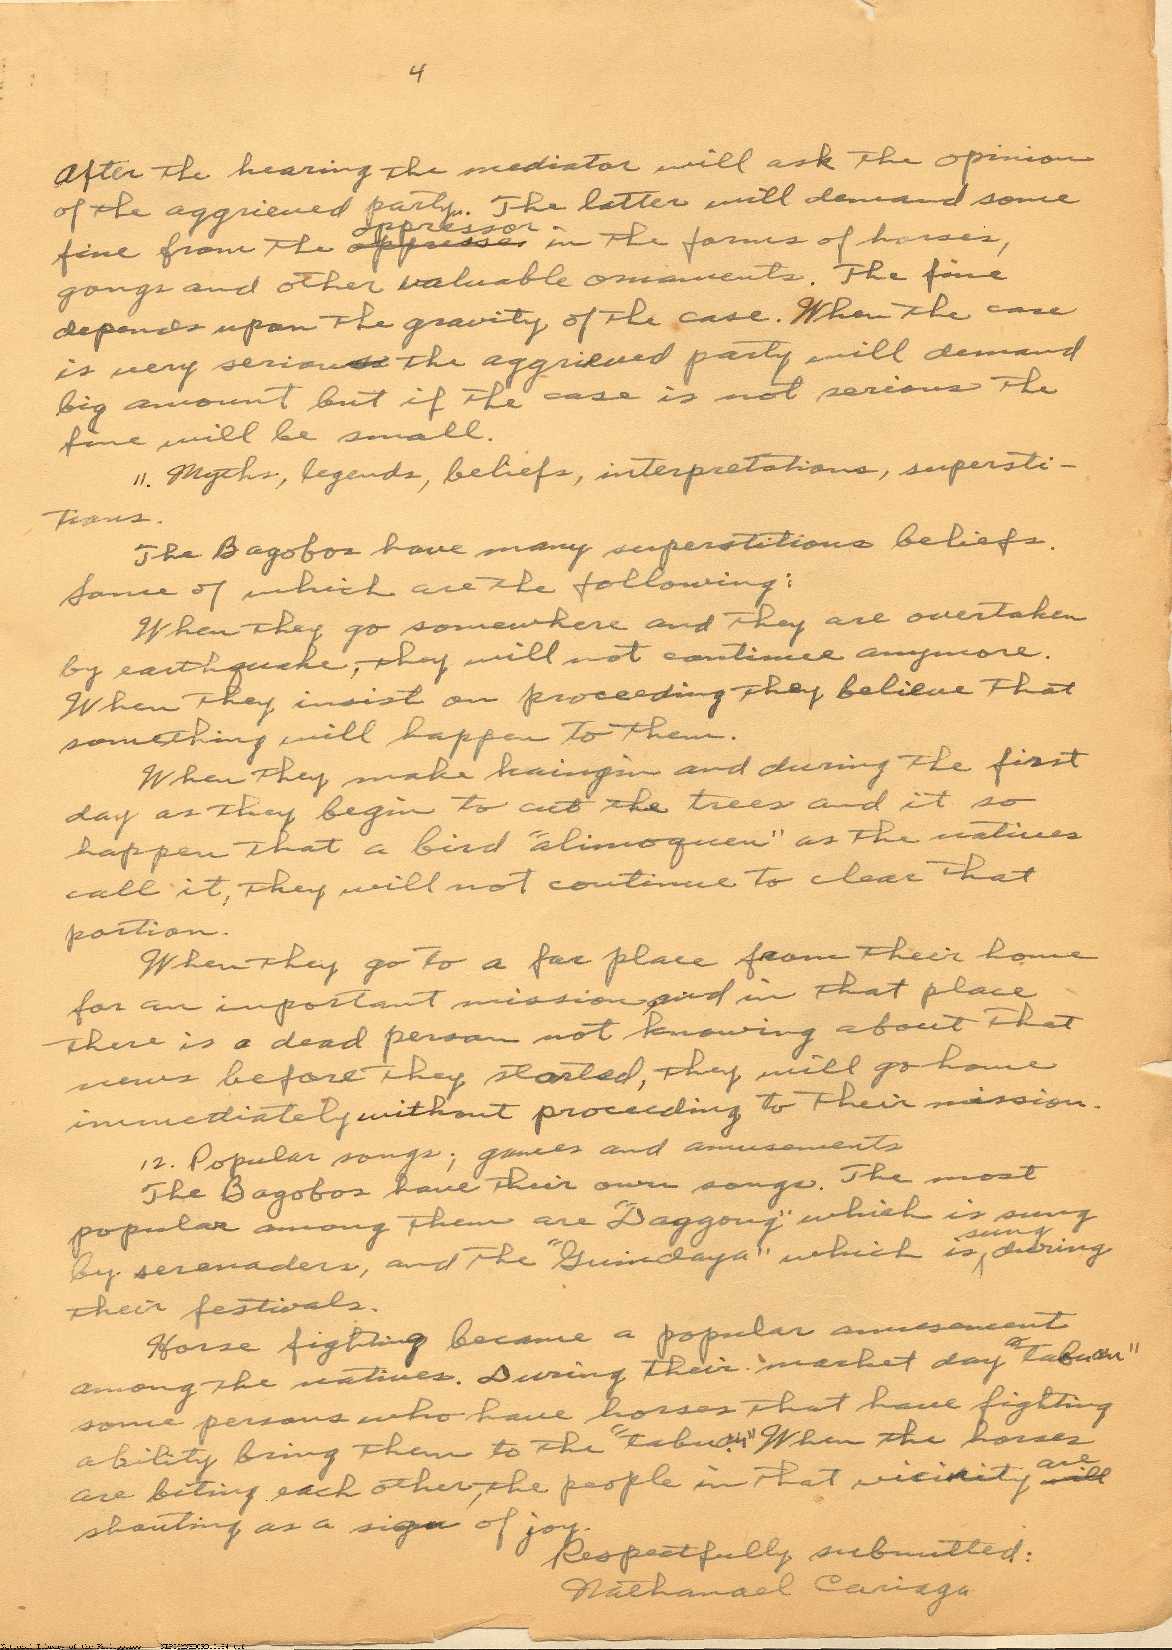 4
After the hearing the mediator will ask the opinion
of the aggrieved party. The latter will demand some
fine from the oppressor in the forms of horses,
gongs and other valuable ornaments. The fine
depends upon the gravity of the case. When the case
is very serious the aggrieved party will demand
big amount but if the case is not serious the
fine will be small.
11. Myths, legends, beliefs, interpretations, supersti-
tions.
The Bagobos have many superstitious beliefs.
Some of which are the following:
When they go somewhere and they are overtaken
by earthquake, they will not continue anymore.
When they insist on proceeding they believe that
something will happen to them.
When they make kaingin and during the first
day as they begin to cut the trees and it so
happen that a bird "alimoquen" as the natives
call it, they will not continue to clear that
portion.
When they go to a far place from their home
for an inportant mission, and in that place
there is a dead person not knowing about that
news before they started, they will go home
immediately without proceeding to their mission.
12. Popular songs; games and amusements
The Bagobos have their own songs. The most
popular among them are "Daggong" which is sung
by serenaders, and the "Guindaya" which is sung during
their festivals.
Horse fighting became a popular amusement
among the natives. During their market day or "tabuan"
some persons who have horses that have fighting
ability bring them to the "tabuan" When the horses
are biting each other, the people in that vicinity are
shouting as a sign of joy.
Respectfully submitted:
Nathanael Cariaga